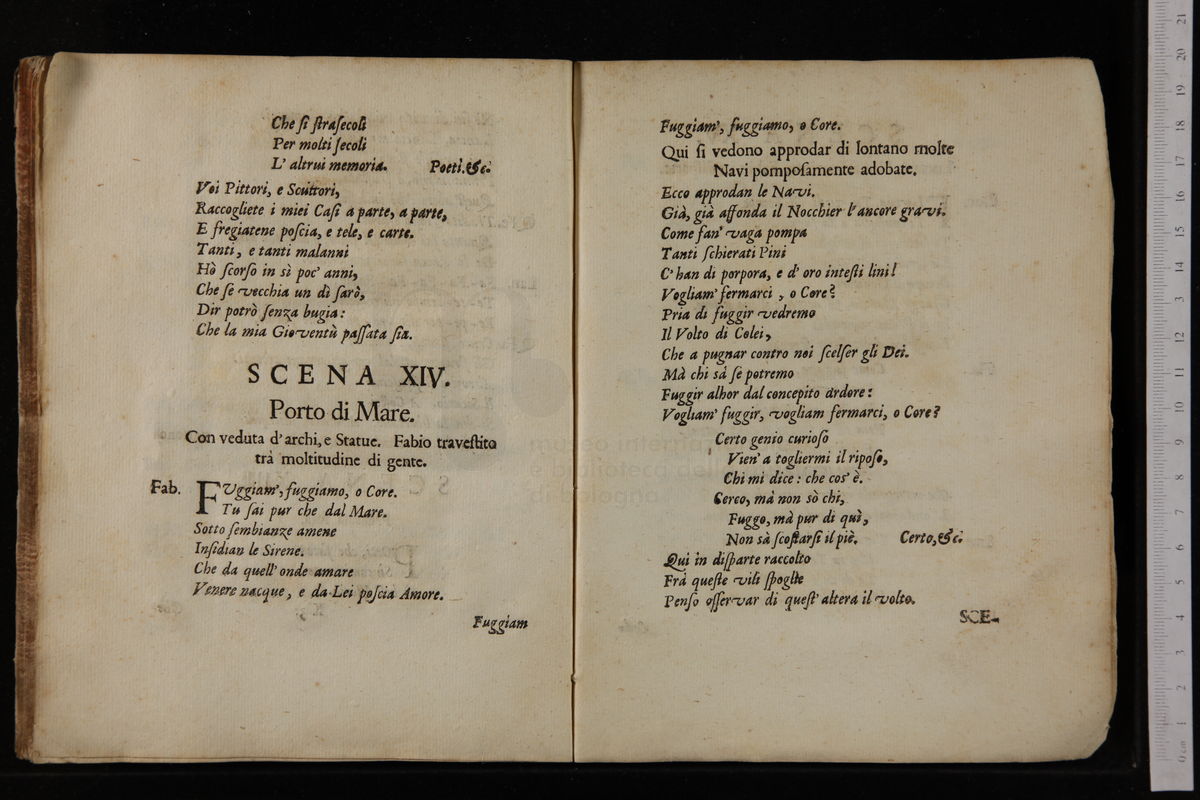 Che ſi ſtraſecoli
Per molti ſecoli
L' altrui memoria. Poeti.&c.
Voi Pittori, e Scultori,
Raccogliete i miei Caſi a parte, a parte,
E fregiatene poſcia, e tele, e carte.
Tanti, e tanti malanni
Hò ſcorſo in sì poc' anni,
Che ſe vecchia un dì ſarò,
Dir potrò ſenza bugia:
Che la mia Gioventù paſſata ſia.
SCENA XIV.
Porto di Mare.
Con veduta d'archi, e Statue. Fabio traveſtito
trà moltitudine di gente.
Fab. FUggiam', fuggiamo, o Core.
Tu ſai pur che dal Mare.
Sotto ſembianze amene
Inſidian le Sirene.
Che da quell' onde amare
Venere nacque, e da Lei poſcia Amore.
Fuggiam
Fuggiam', fuggiamo, o Core.
Qui ſi vedono approdar di lontano molte
Navi pompoſamente adobate.
Ecco approdan le Navi.
Già, già affonda il Nocchier l'ancore gravi.
Come fan' vaga pompa
Tanti ſchierati Pini
C'han di porpora, e d' oro inteſti lini!
Vogliam' fermarci, o Core?
Pria di fuggir vedremo
Il Volto di Colei,
Che a pugnar contro noi ſcelſer gli Dei.
Mà chi sà ſe potremo
Fuggir alhor dal concepito ardore:
Vogliam' fuggir, vogliam fermarci, o Core?
Certo genio curioſo
Vien' a togliermi il ripoſo,
Chi mi dice: che cos' è.
Cerco, mà non sò chi,
Fuggo, mà pur di quì,
Non sà ſcoſtarſi il piè. Certo,&c.
Qui in diſparte raccolto
Frà queſte vili ſpoglie
Penſo oſſervar di queſt' altera il volto.
SCE-